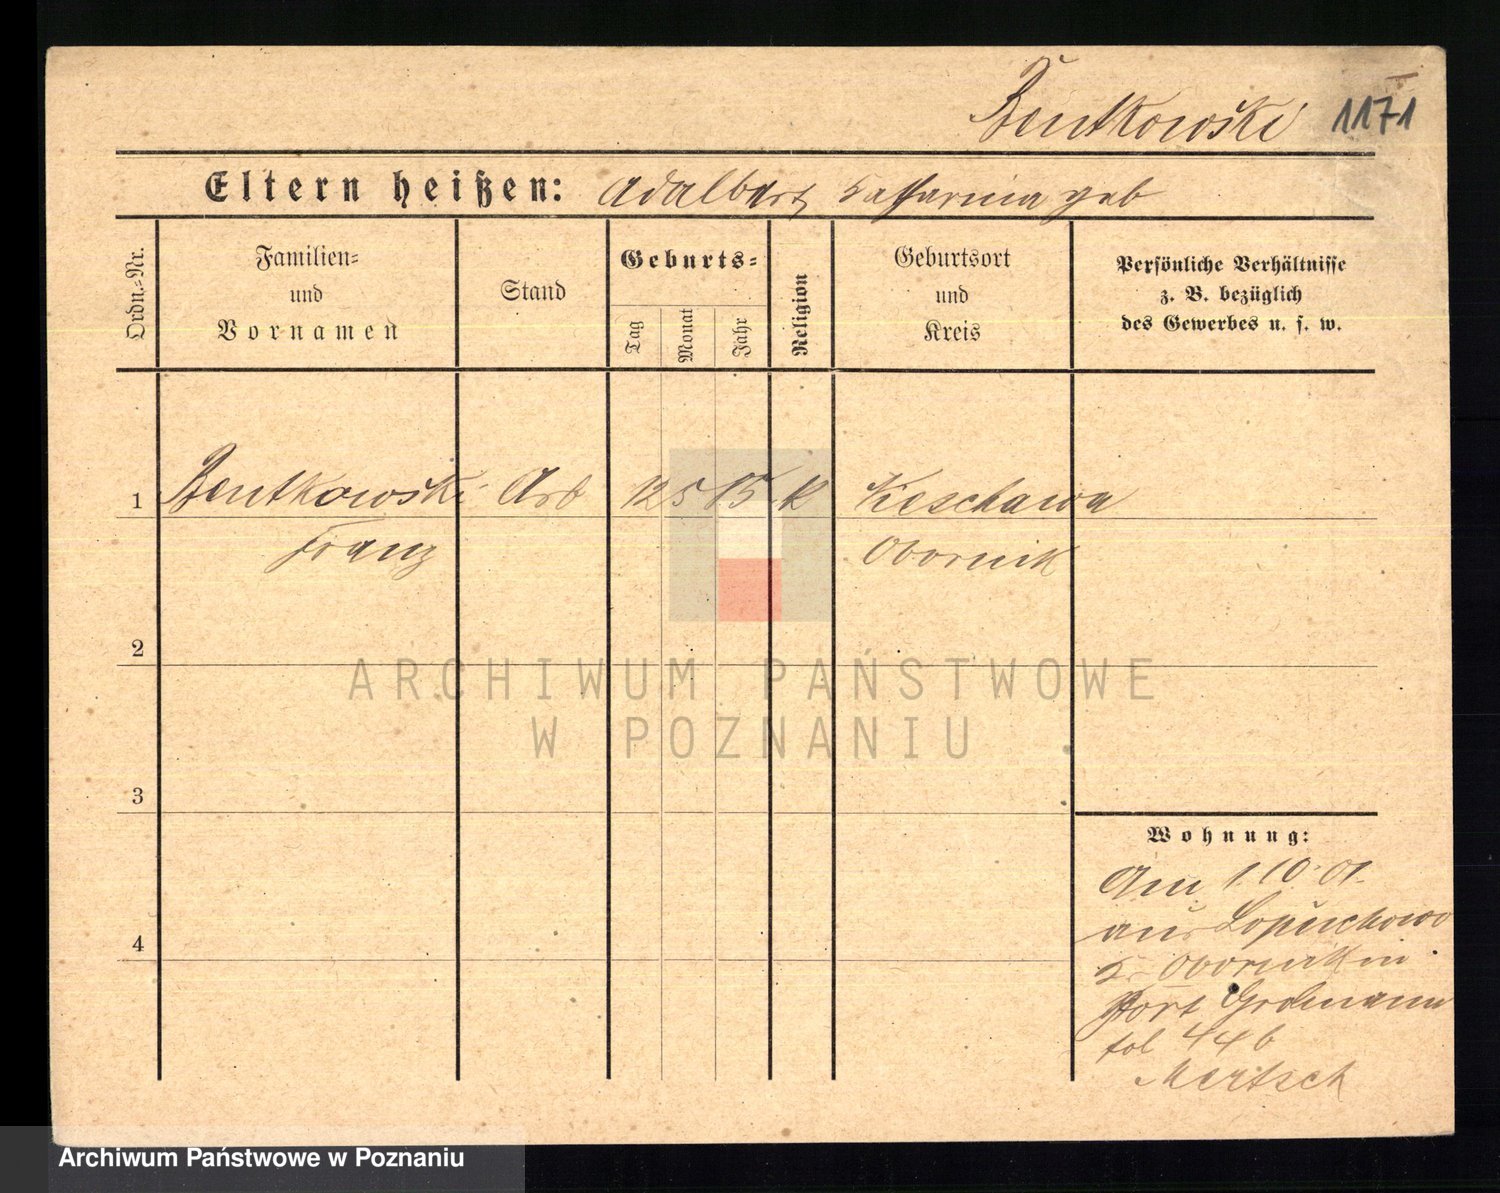 Bentkowski 1171
Eltern heißen: Adalbert Katharina geb
Ordn.-Nr.
Familien-
und
Vornamen
Stand
Geburts-
Tag
Monat
Jahr
Religion
Geburtsort
und
Kreis
Persönliche Verhältnisse
z. B. bezüglich
des Gewerbes u. s. w.
1 Bentkowski Arb 12 5 K
Franz Obornik
2
ARCHIWUM PAŃSTWOWE
W POZNANIU
3
Wohnung:
Am 1. 10. 01.
aus Lopuchowo
Kr Obornik in
Fort Grolmann
fol 44b
4
Archiwum Państwowe w Poznaniu